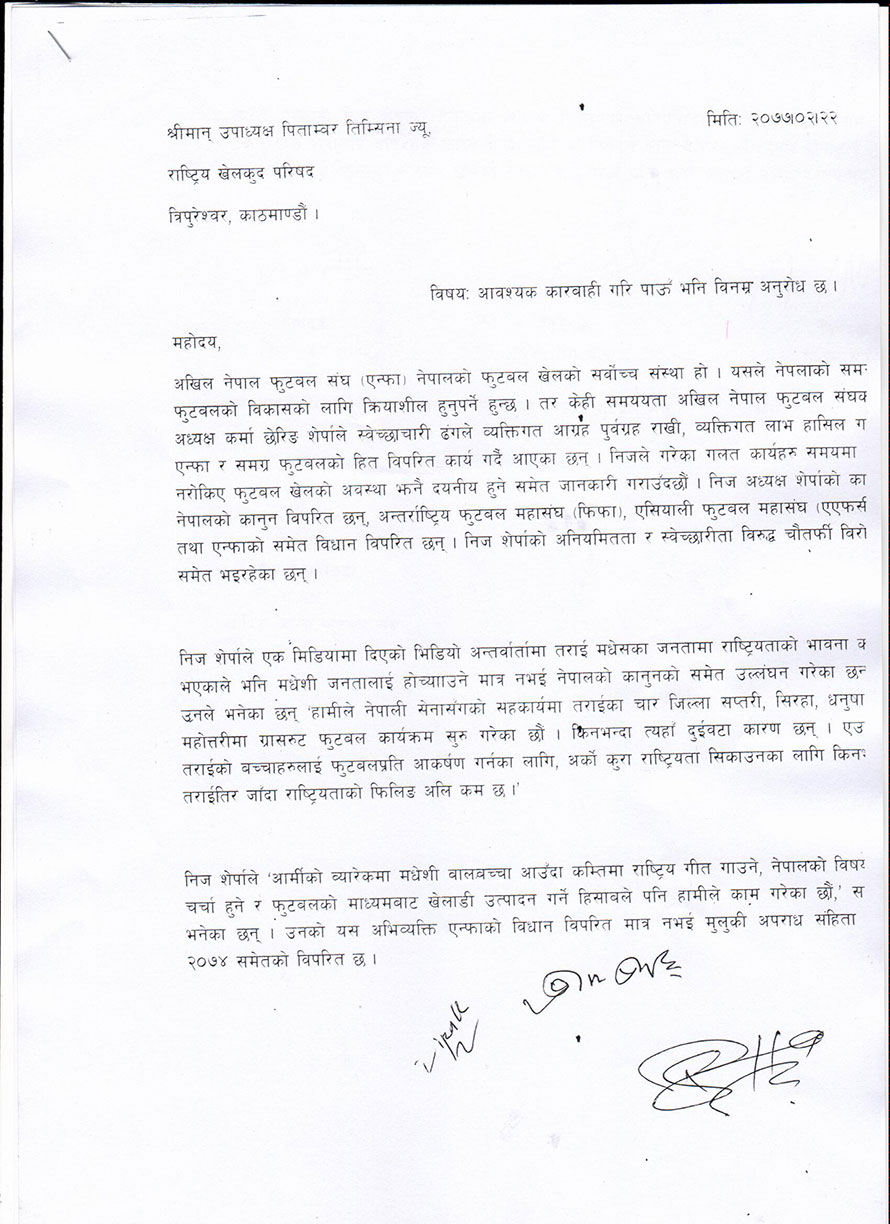 मिति: २०७७।०२।२२
श्रीमान् उपाध्यक्ष पिताम्वर तिम्सिना ज्यू,
राष्ट्रिय खेलकुद परिषद
त्रिपुरेश्वर, काठमाण्डौं ।
विषय: आवश्यक कारबाही गरि पाऊँ भनि विनम्र अनुरोध छ ।
महोदय,
अखिल नेपाल फुटबल संघ (एन्फा) नेपालको फुटबल खेलको सर्वोच्च संस्था हो । यसले नेपलाको
फुटबलको विकासको लागि क्रियाशील हुनुपर्ने हुन्छ । तर केही समययता अखिल नेपाल फुटबल
अध्यक्ष कर्मा छेरिङ शेर्पाले स्वेच्छाचारी ढंगले व्यक्तिगत आग्रह पुर्वग्रह राखी, व्यक्तिगत लाभ हासिल
एन्फा र समग्र फुटबलको हित विपरित कार्य गर्दै आएका छन् । निजले गरेका गलत कार्यहरु समयमा
नरोकिए फुटबल खेलको अवस्था झनै दयनीय हुने समेत जानकारी गराउँदछौं । निज अध्यक्ष शेर्पाको
नेपालको कानुन विपरित छन्, अन्तर्राष्ट्रिय फुटबल महासंघ (फिफा), एसियाली फुटबल महासंघ
तथा एन्फाको समेत विधान विपरित छन् । निज शेर्पाको अनियमितता र स्वेच्छारीता विरुद्ध चौतर्फी
समेत भइरहेका छन् ।
निज शेर्पाले एक मिडियामा दिएको भिडियो अन्तर्वार्तामा तराई मधेसका जनतामा राष्ट्रियताको भावना
भएकाले भनि मधेशी जनतालाई होच्यााउने मात्र नभई नेपालको कानुनको समेत उल्लंघन गरेका
उनले भनेका छन् ‘हामीले नेपाली सेनासंगको सहकार्यमा तराईका चार जिल्ला सप्तरी, सिरहा,
महोत्तरीमा ग्रासरुट फुटबल कार्यक्रम सुरु गरेका छौं । किनभन्दा त्यहाँ दुईवटा कारण छन् ।
तराईको बच्चाहरुलाई फुटबलप्रति आकर्षण गर्नका लागि, अर्को कुरा राष्ट्रियता सिकाउनका लागि
तराईतिर जाँदा राष्ट्रियताको फिलिङ अलि कम छ ।’
निज शेर्पाले ‘आर्मीको व्यारेकमा मधेशी बालबच्चा आउँदा कम्तिमा राष्ट्रिय गीत गाउने, नेपालको
चर्चा हुने र फुटबलको माध्यमबाट खेलाडी उत्पादन गर्ने हिसाबले पनि हामीले काम गरेका छौं,’
भनेका छन् । उनको यस अभिव्यक्ति एन्फाको विधान विपरित मात्र नभई मुलुकी अपराध संहिता
२०७४ समेतको विपरित छ ।